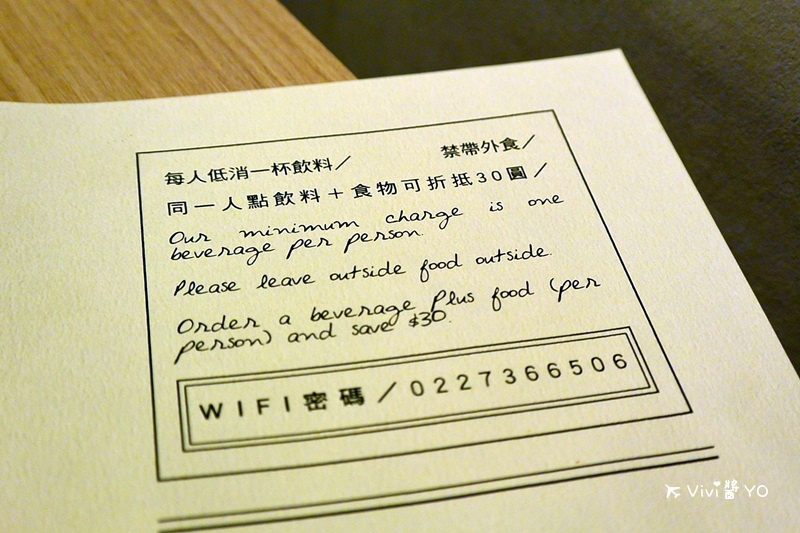 每人低消一杯飲料／ 禁帶外食／
同一人點飲料＋食物可折抵30圓／
Our minimum charge is one
beverage per person.
Please leave outside food outside.
Order a beverage plus food (per
person) and save $30.
WIFI密碼／0227366506
Vivi醬YO